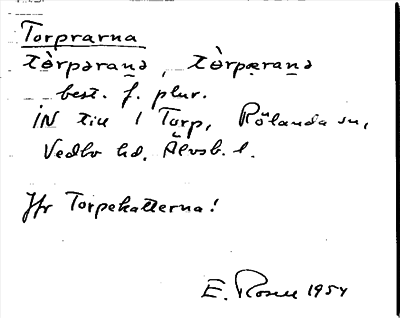 Torprarna
tòrpərans̱ə, tòrpæraṉə
best. f. plur.
IN till 1 Torp, Rölanda sn,
Vedbo hd. Älvsb. l.
Jfr Torpekatterna!
E. Rosell 1954